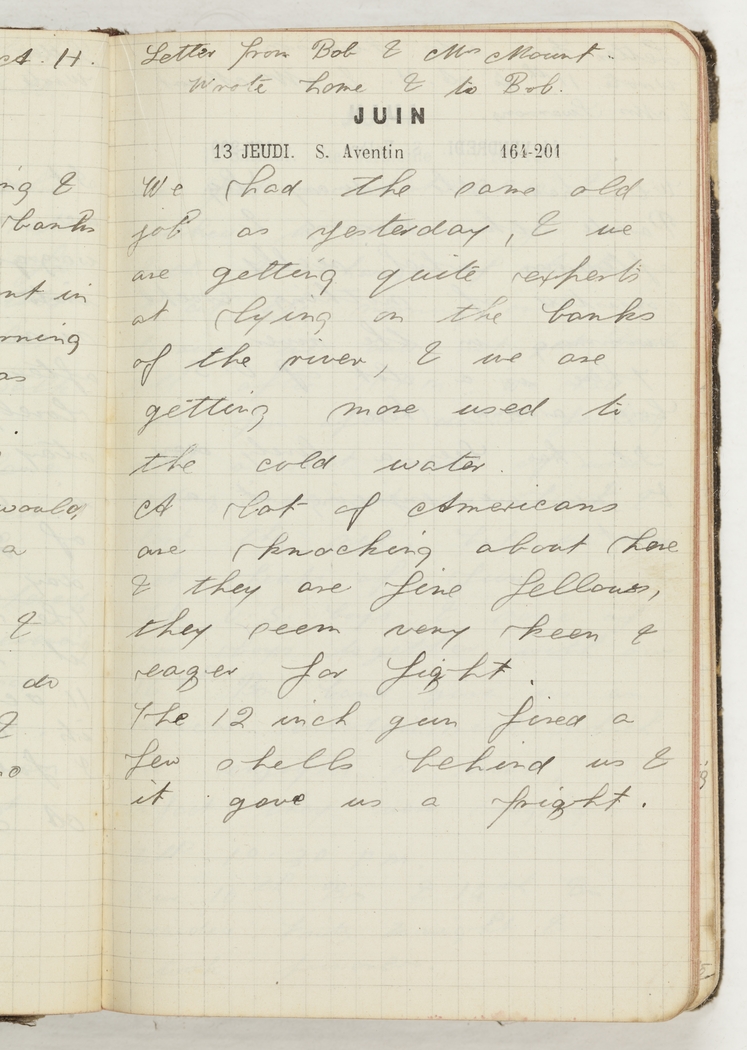 A. H.
ng &
banks
nt in
rning
as
would
a
&
do
&
Letter from Bob & Mrs Mount.
Wrote home & to Bob.
JUIN
13 JEUDI. S. Aventin 164-201
We had the same old
job as yesterday, & we
are getting quite experts
at lying on the banks
of the river, & we are
getting more used to
the cold water.
A lot of Americans
are knocking about here
& they are fine fellows,
they seem very keen &
eager for fight.
The 12 inch gun fired a
few shells behind us &
it gave us a fright.